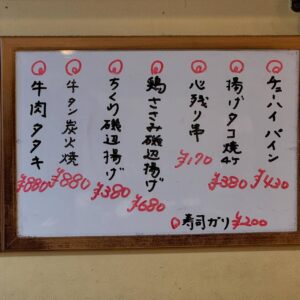 チューハイ パイン ¥430
揚げタコ焼 4ケ ¥380
心残り串 ¥170
鶏ささみ磯辺揚げ ¥680
ちくわ磯辺揚げ ¥380
牛タン炭火焼 ¥880
牛肉タタキ ¥880
寿司ガリ ¥200